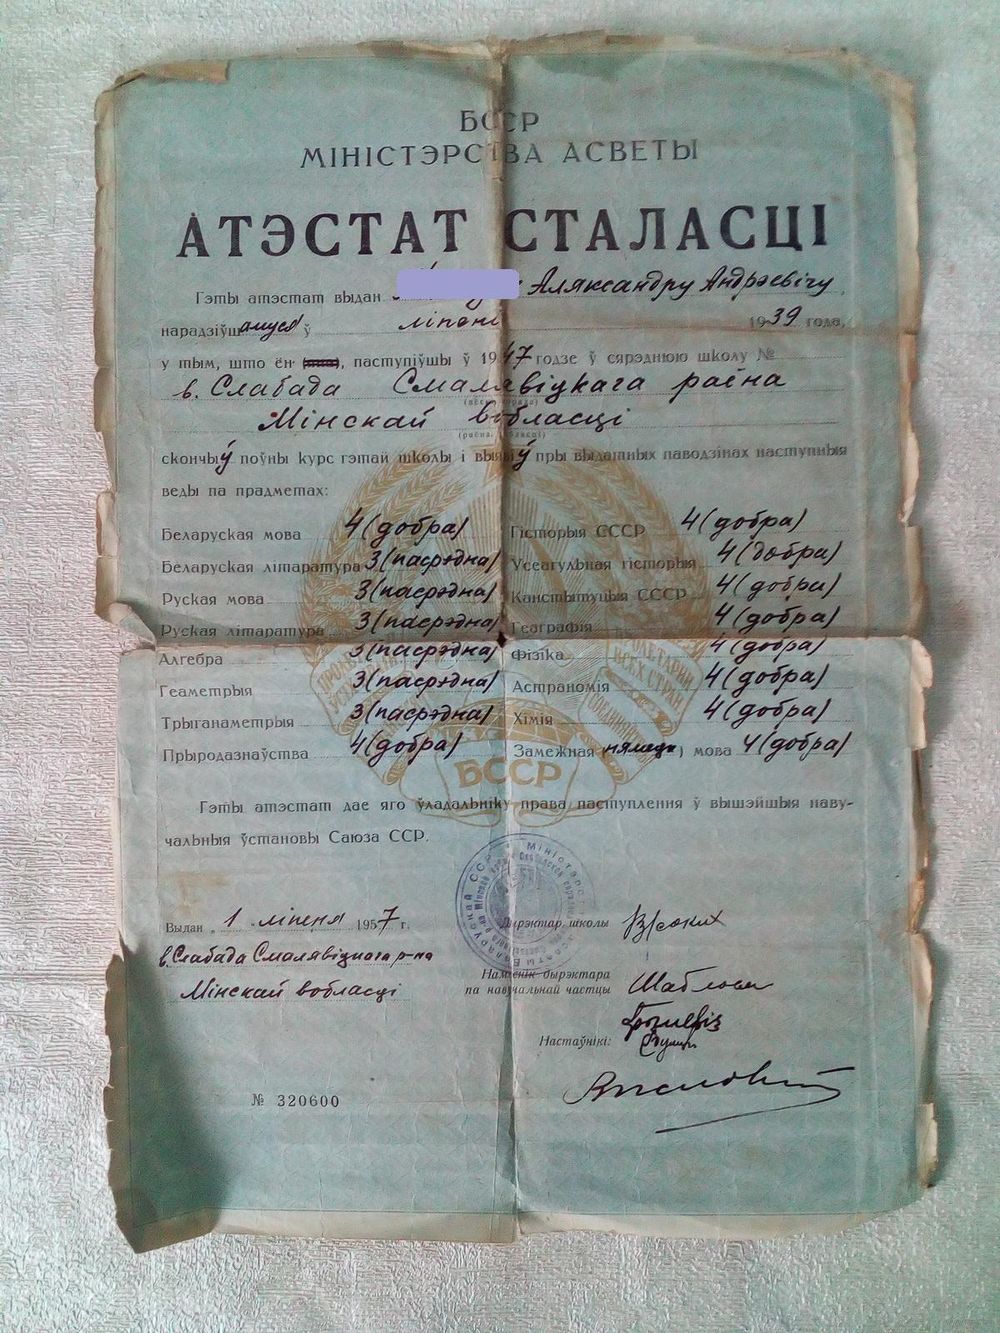 БССР
МІНІСТЭРСТВА АСВЕТЫ
АТЭСТАТ СТАЛАСЦІ
Гэты атэстат выдан Аляксандру Андрэевічу
нарадзіўшамуся ў ліпені 1939 года,
у тым, што ён паступіўшы ў 1947 годзе ў сярэднюю школу №
в. Слабада Смалявіцкага раёна
Мінскай вобласці
(раёна, вобласці)
скончыў поўны курс гэтай школы і выявіў пры выдатных паводзінах наступныя
веды па прадметах:
Беларуская мова 4 (добра)
Беларуская літаратура 3 (пасрэдна)
Руская мова 3 (пасрэдна)
Руская літаратура 3 (пасрэдна)
Алгебра 3 (пасрэдна)
Геаметрыя 3 (пасрэдна)
Трыганаметрыя 3 (пасрэдна)
Прыродазнаўства 4 (добра)
Гісторыя СССР 4 (добра)
Усеагульная гісторыя 4 (добра)
Канстытуцыя СССР 4 (добра)
Геаграфія 4 (добра)
Фізіка 4 (добра)
Астраномія 4 (добра)
Хімія 4 (добра)
Замежная (нямецк) мова 4 (добра)
БССР
Гэты атэстат дае яго ўладальніку права паступлення ў вышэйшыя наву-
чальныя ўстановы Саюза ССР.
Выдан „ 1 ліпеня 1957 г.
в. Слабада Смалявіцкага р-на
Мінскай вобласці
Дырэктар школы
Намеснік дырэктара
па навучальнай частцы
Настаўнікі:
№ 320600